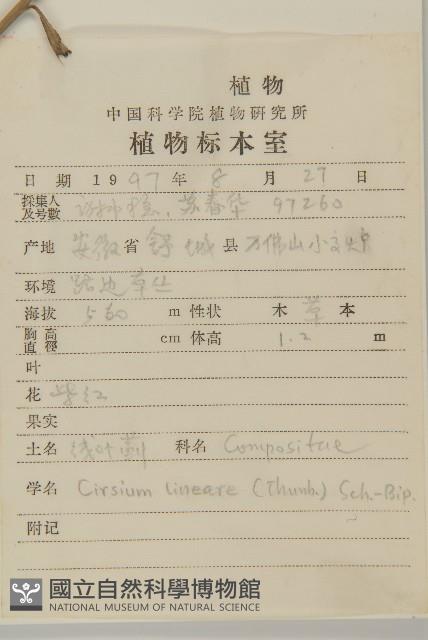 植物
中国科学院植物研究所
植物标本室
日 期 1997 年 8 月 27 日
採集人及号數 苏春华 97260
产地 安徽省 舒城 县 万佛山小
环境 路边草丛
海拔 560 m 性状 木 草 本
胸高直徑 cm 体高 1.2 m
叶
花 紫红
果实
土名 线叶蓟 科名 Compositae
学名 Cirsium lineare (Thunb.) Sch.-Bip.
附记
國立自然科學博物館
NATIONAL MUSEUM OF NATURAL SCIENCE